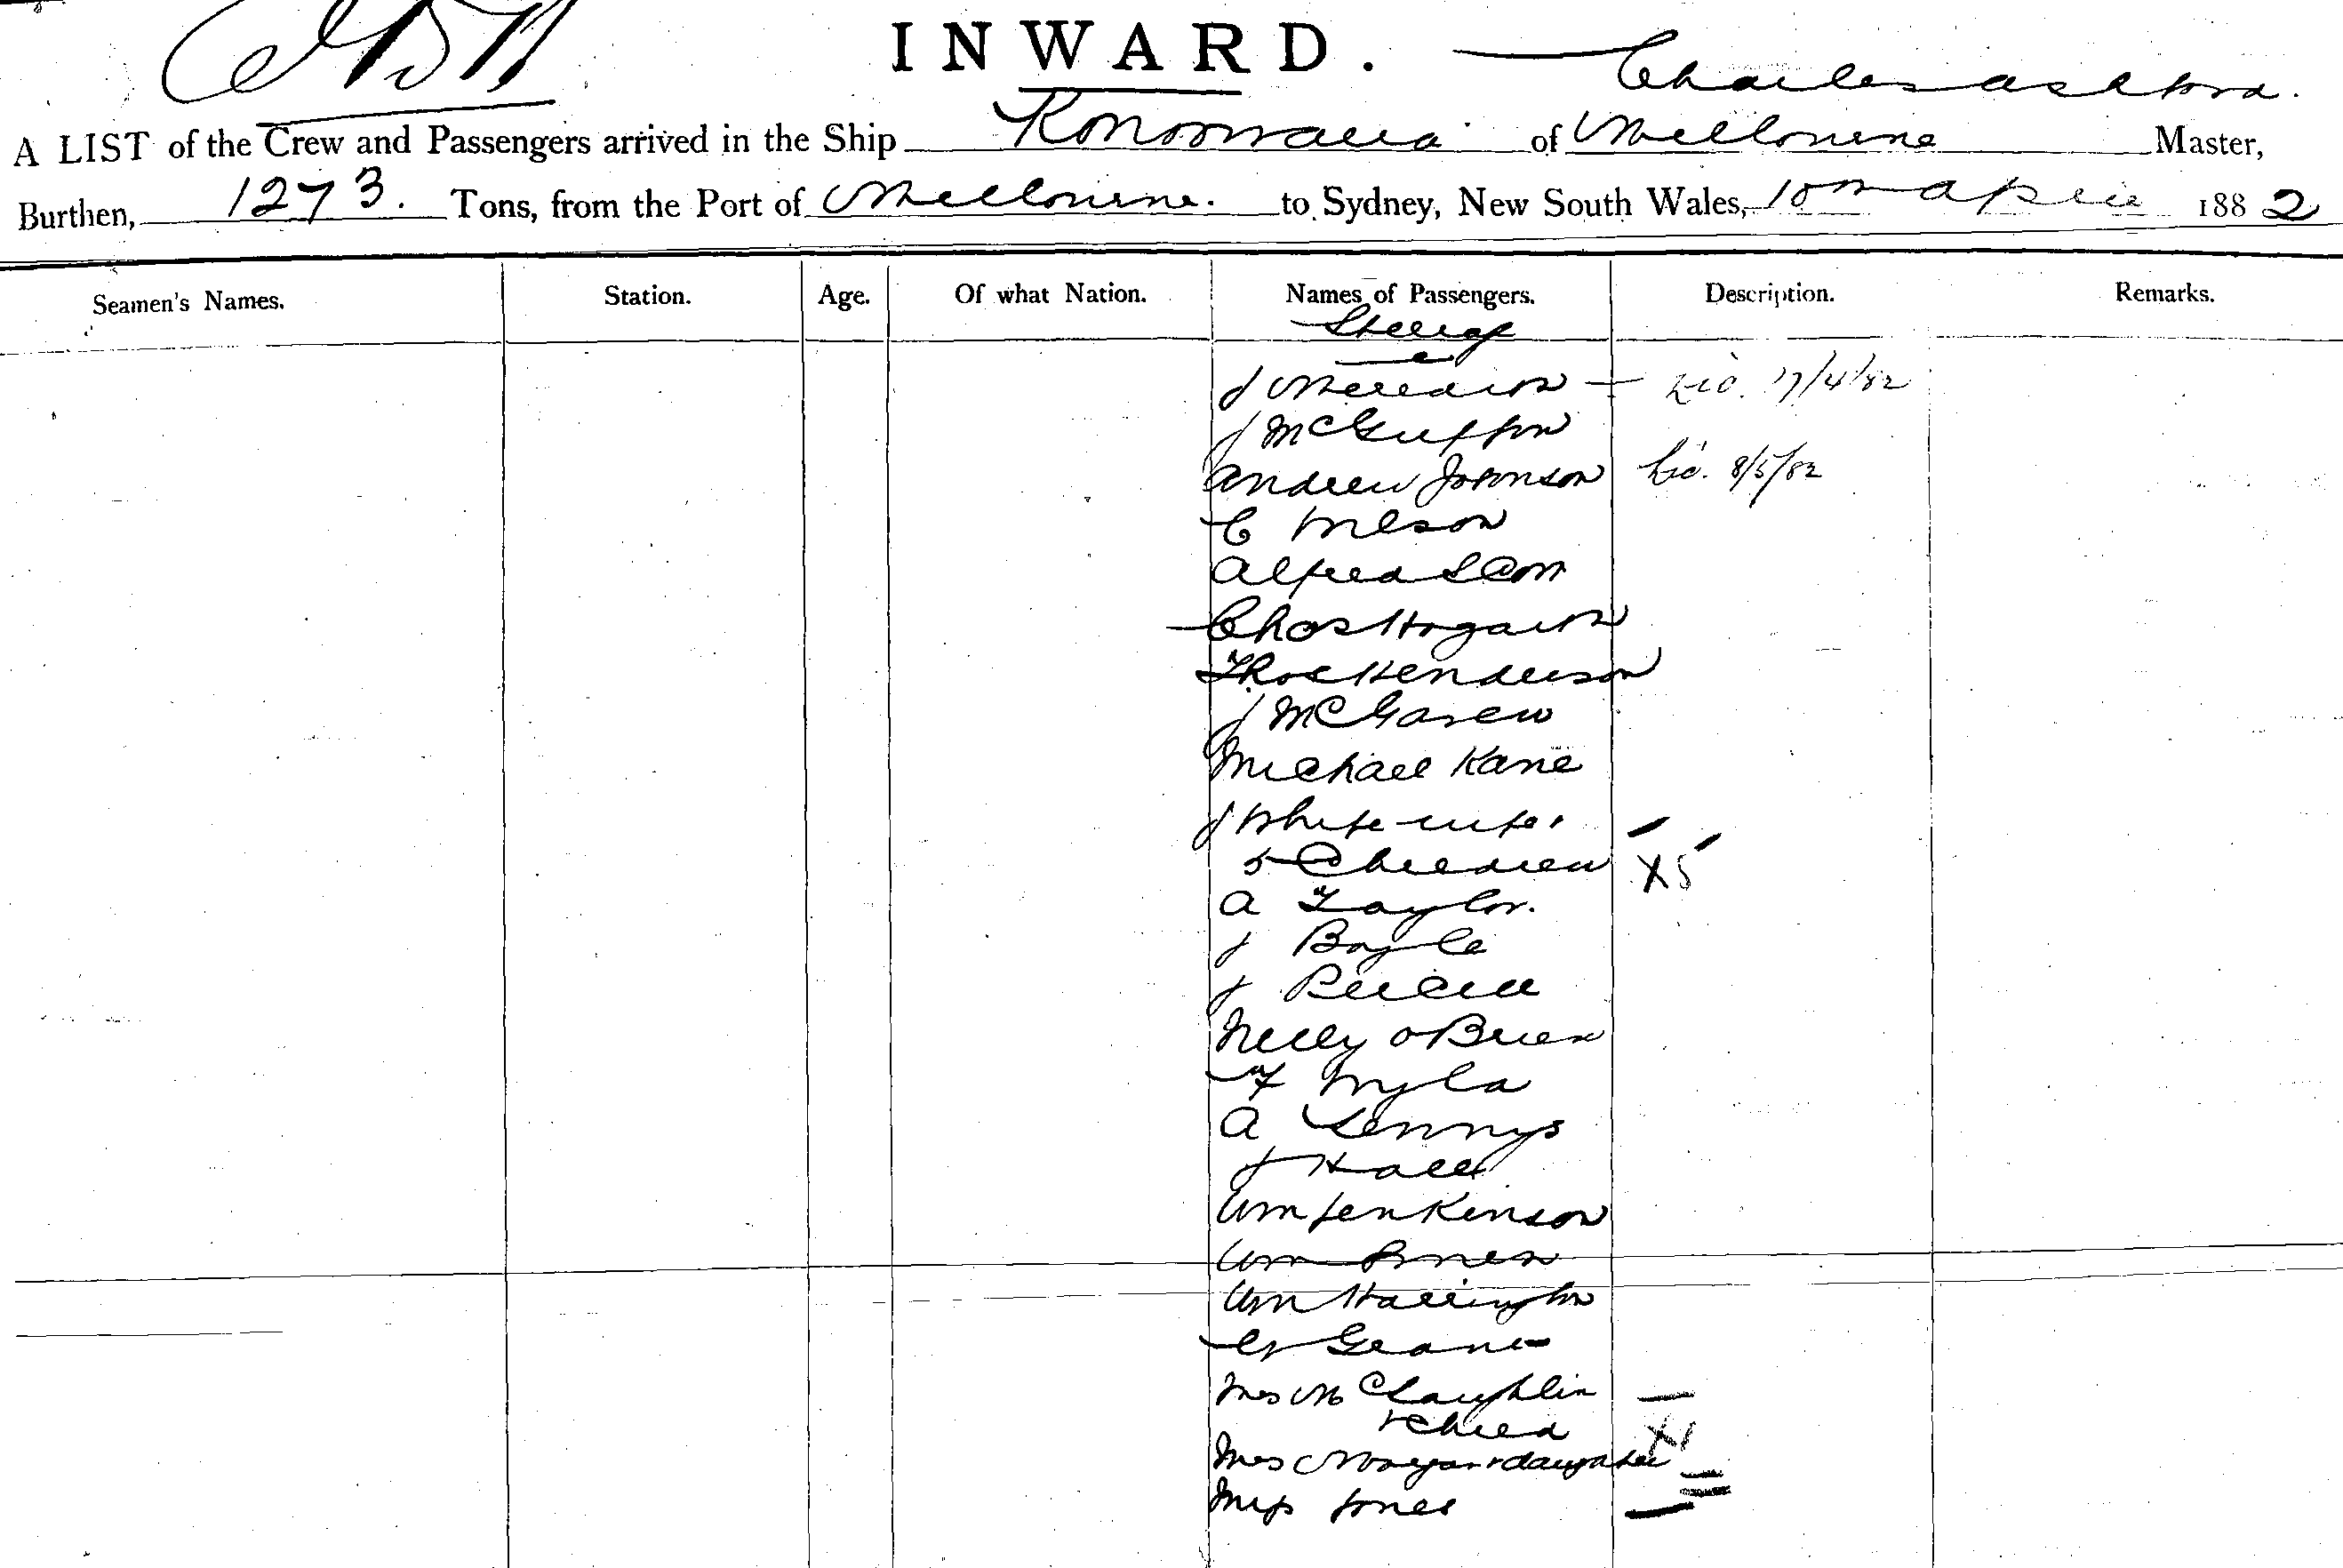 INWARD.
Charles Ashford.
A LIST of the Crew and Passengers arrived in the Ship Konoowarra of Melbourne Master,
Burthen, 1273. Tons, from the Port of Melbourne. to Sydney, New South Wales, 10th April 1882
Seamen's Names. Station. Age. Of what Nation. Names of Passengers. Description. Remarks.
Steerage
J Meredith — Lic. 17/4/82
J McGuffon
Andrew Johnson Lic. 8/5/82
C Wilson
Alfred
Chas Hogarth
Thos Henderson
J McGarew
Michael Kane
J White wife
5 Children X5
A Taylor.
J Boyle
J
Nelly O Brien
F
A Lennys
J Hall
Wm Jenkinson
Wm
Wm Harrington
Geo Grant
Mrs McLaughlin
+ Child X1
Mrs Morgan + daughter
Miss Jones